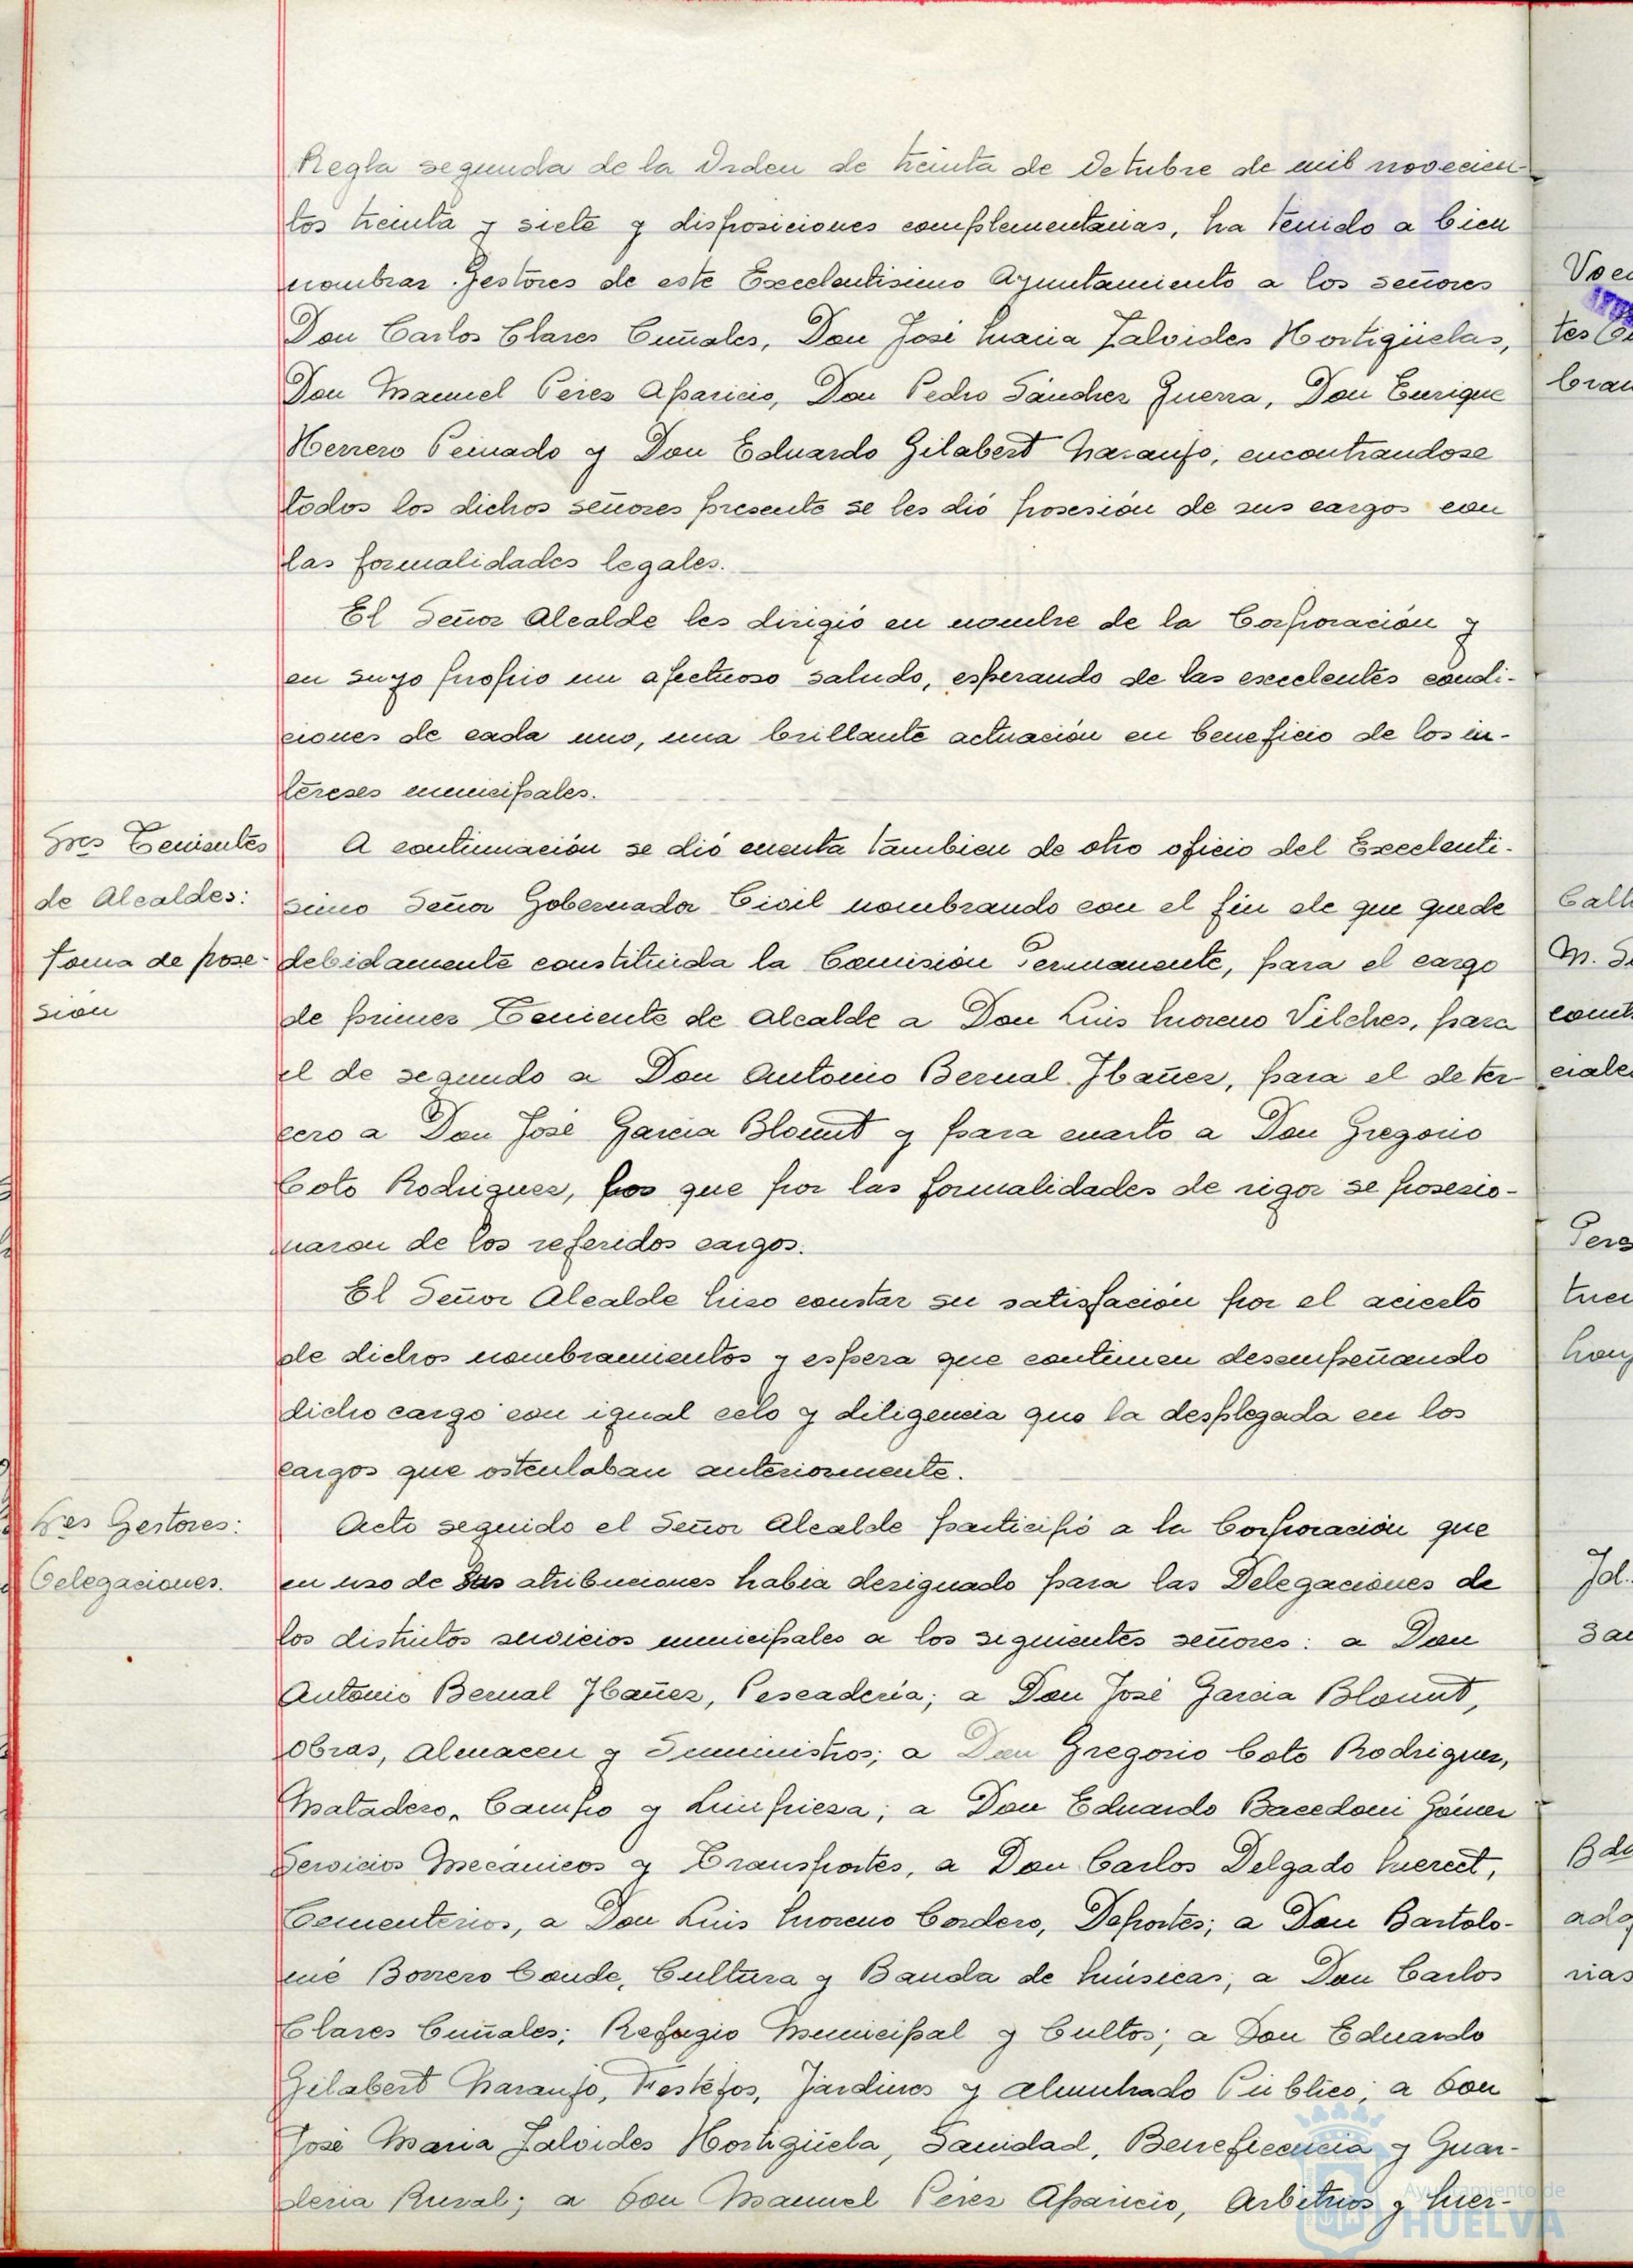 Regla segunda de la Orden de treinta de Octubre de mil novecien-
tos treinta y siete y disposiciones complementarias, ha tenido a bien
nombrar Gestores de este Excelentisimo Ayuntamiento a los señores
Don Carlos Clares Cuñales, Don José Maria Zalvides Hortigüelas,
Don Manuel Peres Aparicio, Don Pedro Sánchez Guerra, Don Enrique
Herrero Peinado y Don Eduardo Gilabert Naranjo, encontrandose
todos los dichos señores presente se les dió posesión de sus cargos con
las formalidades legales.
El Señor Alcalde les dirigió en nombre de la Corporación y
en suyo propio un afectuoso saludo, esperando de las excelentes condi-
ciones de cada uno, una brillante actuación en beneficio de los in-
tereses municipales.
Sres Tenientes
de Alcaldes:
toma de pose-
sión
A continuación se dió cuenta tambien de otro oficio del Excelenti-
simo Señor Gobernador Civil nombrando con el fin de que quede
debidamente constituida la Comisión Permanente, para el cargo
de primer Teniente de Alcalde a Don Luis Moreno Vilches, para
el de segundo a Don Antonio Bernal Ibañez, para el de ter-
cero a Don José Garcia Blount y para cuarto a Don Gregorio
Coto Rodriguez, los que por las formalidades de rigor se posesio-
naron de los referidos cargos.
El Señor Alcalde hizo constar su satisfación por el acierto
de dichos nombramientos y espera que continuen desempeñando
dicho cargo con igual celo y diligencia que la desplegada en los
cargos que ostentaban anteriormente.
Sres Gestores:
Delegaciones.
Acto seguido el Señor Alcalde participó a la Corporación que
en uso de sus atribuciones habia designado para las Delegaciones de
los distintos servicios municipales a los siguientes señores: a Don
Antonio Bernal Ibañez, Pescadería; a Don José Garcia Blount,
Obras, Almacen y Suministros; a Don Gregorio Coto Rodriguez,
Matadero, Campo y Limpieza; a Don Eduardo Bacedoni Gómez
Servicios Mecánicos y Transportes, a Don Carlos Delgado
Cementerios, a Don Luis Moreno Cordero, Deportes; a Don Bartolo-
mé Borrero Conde, Cultura y Banda de Músicas; a Don Carlos
Clares Cuñales; Refugio Municipal y Cultos; a Don Eduardo
Gilabert Naranjo, Festejos, Jardines y Alumbrado Público; a Don
José Maria Zalvides Hortigüela, Sanidad, Beneficencia y Guar-
deria Rural; a Don Manuel Péres Aparicio, Arbitrios y Mer-
Ayuntamiento de
HUELVA